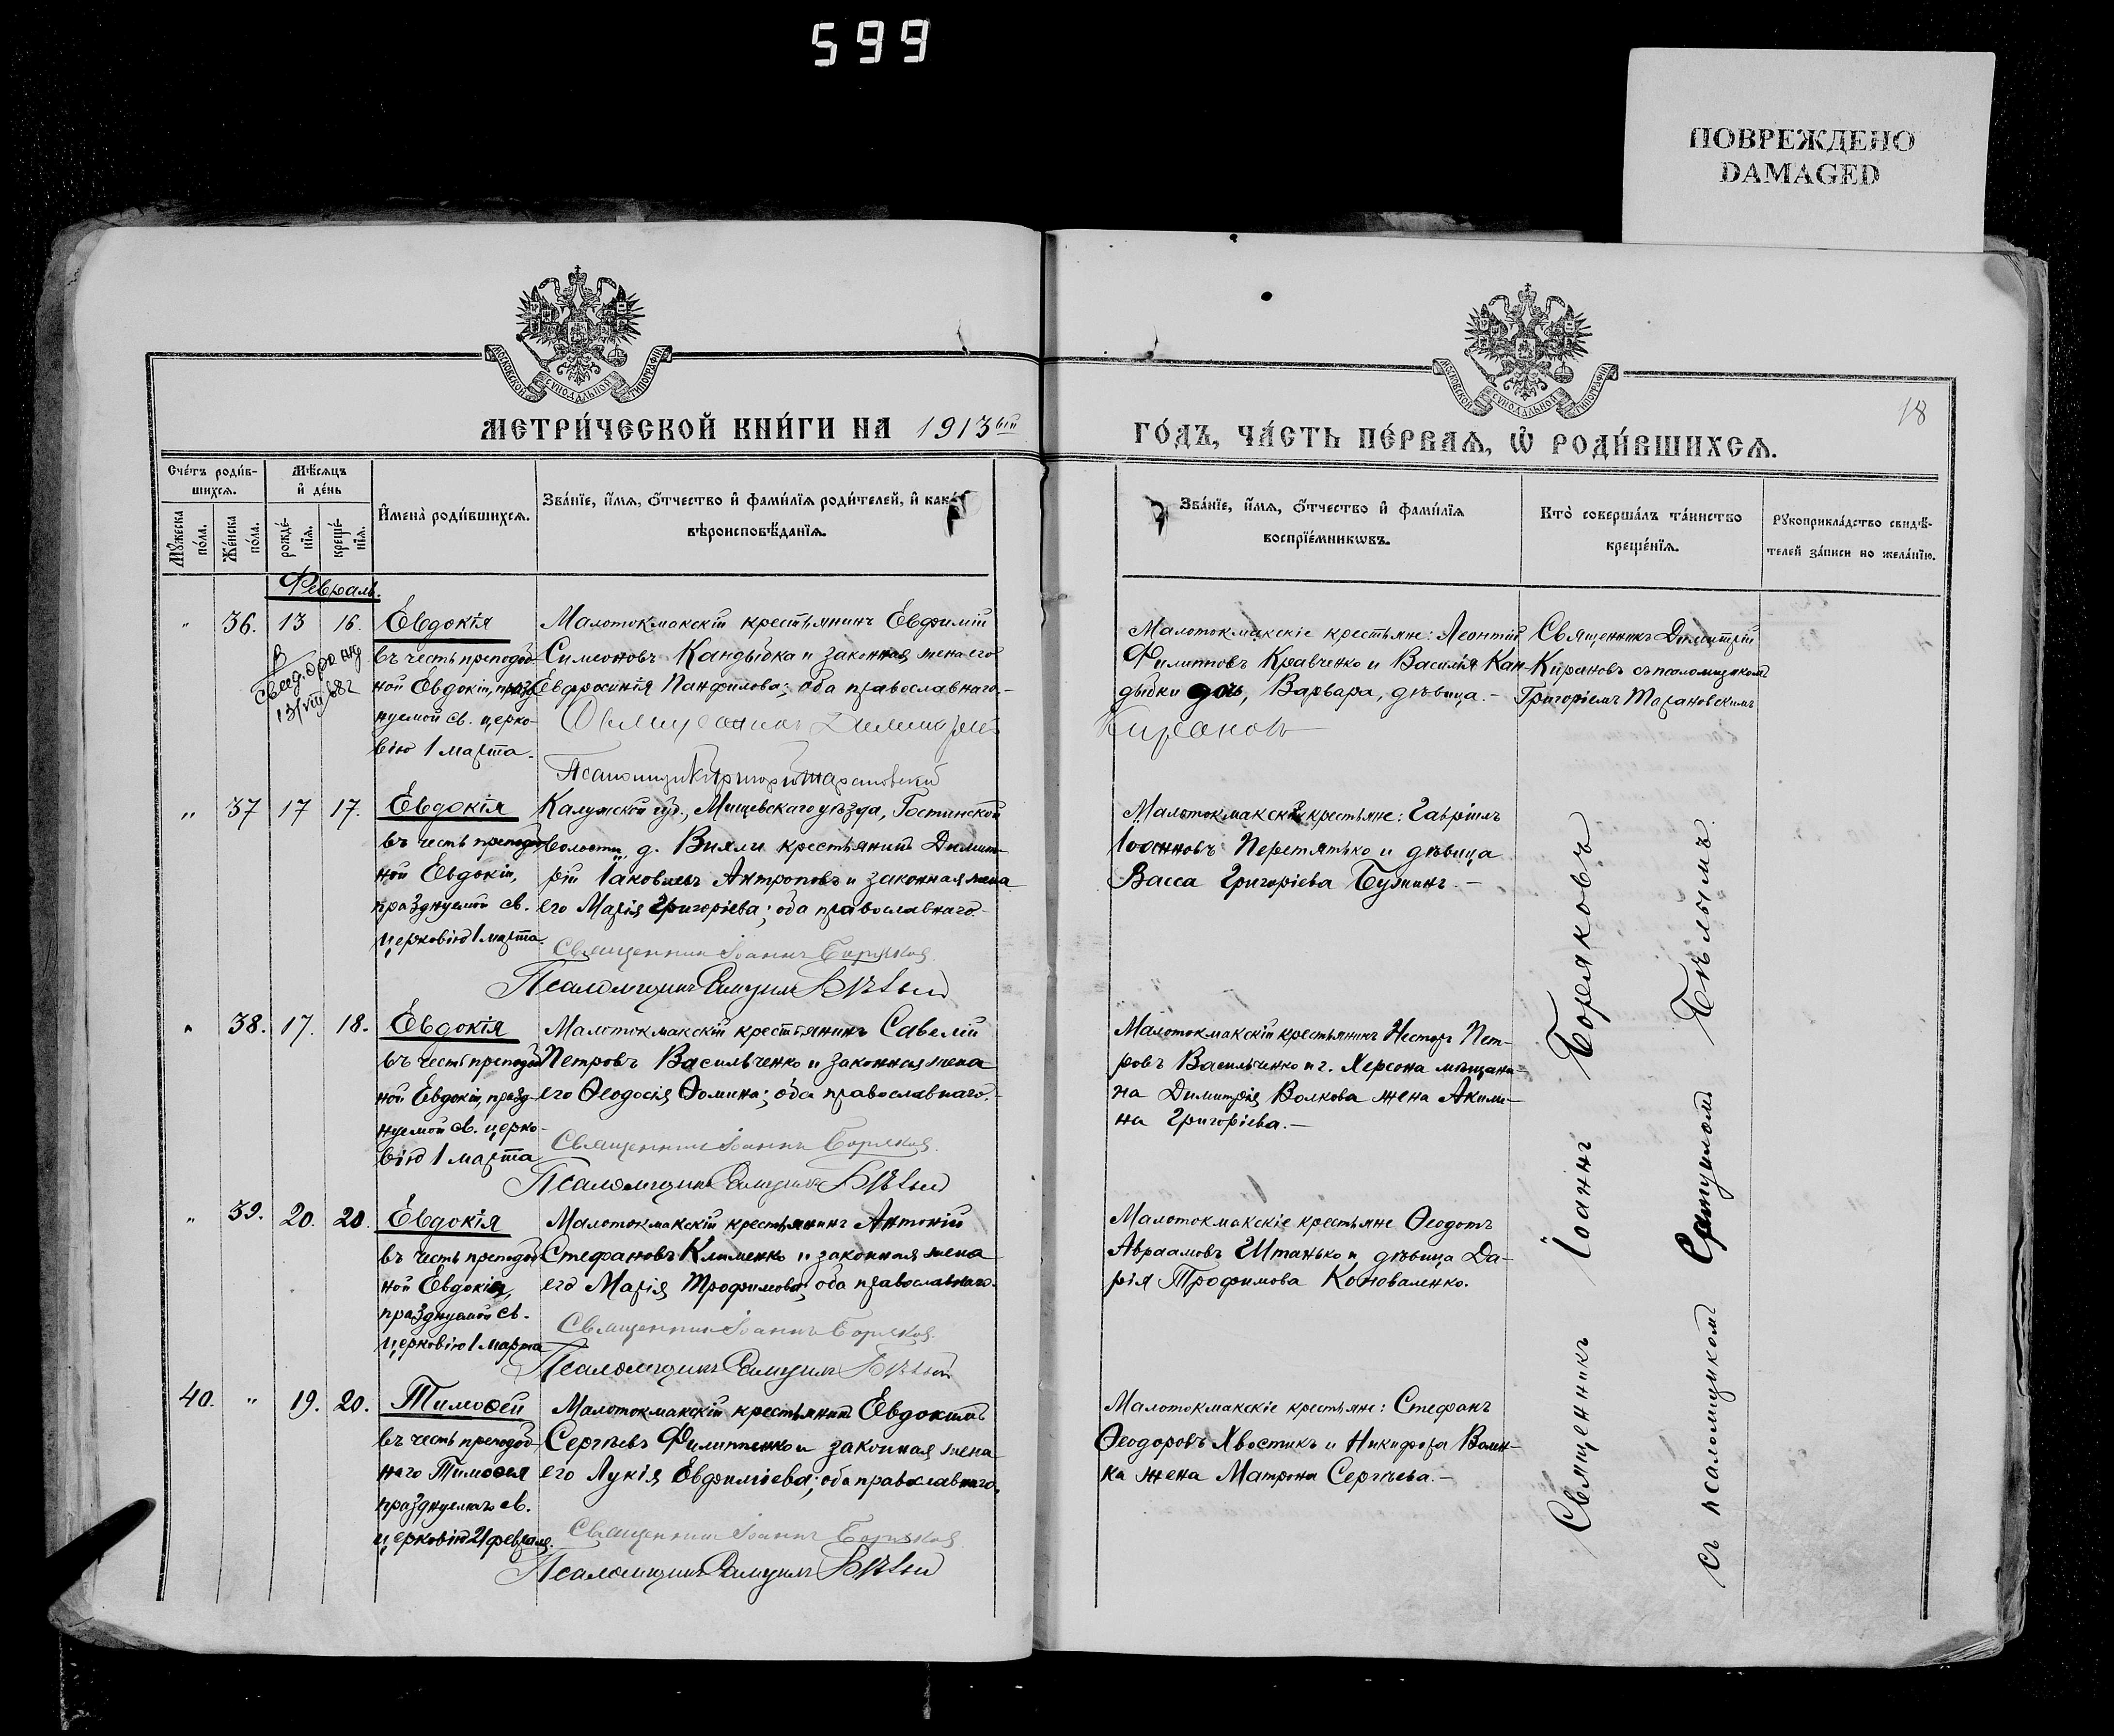 599
ПОВРЕЖДЕНО
DAMAGED
МОСКОВСКОЙ СѴНОДАЛЬНОЙ ТИПОГРАФІИ
МОСКОВСКОЙ СѴНОДАЛЬНОЙ ТИПОГРАФІИ
18
МЕТРИ́ЧЕСКОЙ КНИ́ГИ НА 1913ый
ГО́ДЪ, ЧА́СТЬ ПЕ́РВАѦ, Ѡ҆ РОДИ́ВШИХСѦ.
Сче́тъ роди́в-
шихсѧ.
Мѣ́сѧцъ
и҆ де́нь
Мꙋ́жеска
по́ла.
Же́нска
по́ла.
рожде́-
нїѧ.
креще́-
нїѧ.
И҆мена̀ роди́вшихсѧ.
Зва́нїе, и҆́мѧ, ѻ҆́тчество и҆ фами́лїѧ роди́телей, и҆ како́
вѣроисповѣ́данїѧ.
Зва́нїе, и҆́мѧ, ѻ҆́тчество и҆ фами́лїѧ
воспрїе́мникѡвъ.
Кто̀ соверша́лъ та́инство
креще́нїѧ.
Рꙋкоприкла́дство свидѣ́-
телей за́писи по жела́нїю.
Февраль.
" 36. 13 16. Евдокія
въ честь преподоб-
ной Евдокіи, празд-
нуемой св. церко-
вію 1 марта.
13/VIII 682
Малотокмакскій крестьянинъ Евфимій
Симеоновъ Кандыбка и законная жена его
Евфросинія Панфилова; оба православнаго.-
Священникъ Димитрій
Кирановъ
Псаломщикъ Григорій Тарановскій
Малотокмакскіе крестьяне: Леонтій
Филипповъ Кравченко и Василія Кан-
дыбки дочь, Варвара, дѣвица.-
Священникъ Димитрій
Кирановъ съ псаломщикомъ
Григоріемъ Тарановскимъ
" 37 17 17. Евдокія
въ честь преподоб-
ной Евдокіи,
празднуемой св.
церковію 1 марта.
Калужской губ., Мещевскаго уѣзда, Гостинской
волости, д. Вяли крестьянинъ Димит-
рій Іаковлевъ Антроповъ и законная жена
его Марія Григоріева; оба православнаго.-
Священникъ Іоаннъ Боряковъ.
Псаломщикъ Самуилъ Бѣлый
Малотокмакскіе крестьяне: Гавріилъ
Іоанновъ Перетятько и дѣвица
Васса Григоріева Бужинъ.-
" 38. 17. 18. Евдокія
въ честь преподоб
ной Евдокіи, празд-
нуемой св. церко-
вію 1 марта
Малотокмакскій крестьянинъ Савелій
Петровъ Васильченко и законная жена
его Ѳеодосія Ѳомина; оба православнаго.-
Священникъ Іоаннъ Боряковъ.
Псаломщикъ Самуилъ Бѣлый
Малотокмакскій крестьянинъ Несторъ Пет-
ровъ Васильченко и г. Херсона мѣщани-
на Димитрія Волкова жена Акили-
на Григоріева.-
" 39. 20. 20. Евдокія
въ честь преподоб
ной Евдокіи,
празднуемой св.
церковію 1 марта
Малотокмакскій крестьянинъ Антоній
Стефановъ Клименко и законная жена
его Марія Трофимова; оба православнаго.
Священникъ Іоаннъ Боряковъ.
Псаломщикъ Самуилъ Бѣлый
Малотокмакскіе крестьяне Ѳеодотъ
Авраамовъ Штанько и дѣвица Да-
рія Трофимова Коноваленко.
40. " 19. 20. Тимоѳей
въ честь преподоб-
наго Тимоѳея
празднуемаго св.
церковію 21 февраля.
Малотокмакскій крестьянинъ Евдокимъ
Сергѣевъ Филиппенко и законная жена
его Лукія Евфиміева; оба православнаго.
Священникъ Іоаннъ Боряковъ
Псаломщикъ Самуилъ Бѣлый
Малотокмакскіе крестьяне: Стефанъ
Ѳеодоровъ Хвостикъ и Никифора Волин-
ка жена Матрона Сергѣева.-
Священникъ Іоаннъ Боряковъ
съ псаломщикомъ Самуиломъ Бѣлымъ.